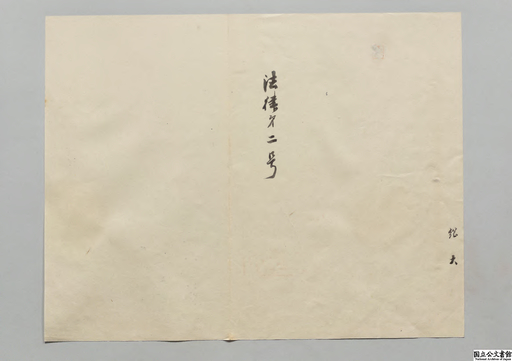 法律才二号
国立公文書館
National Archives of Japan